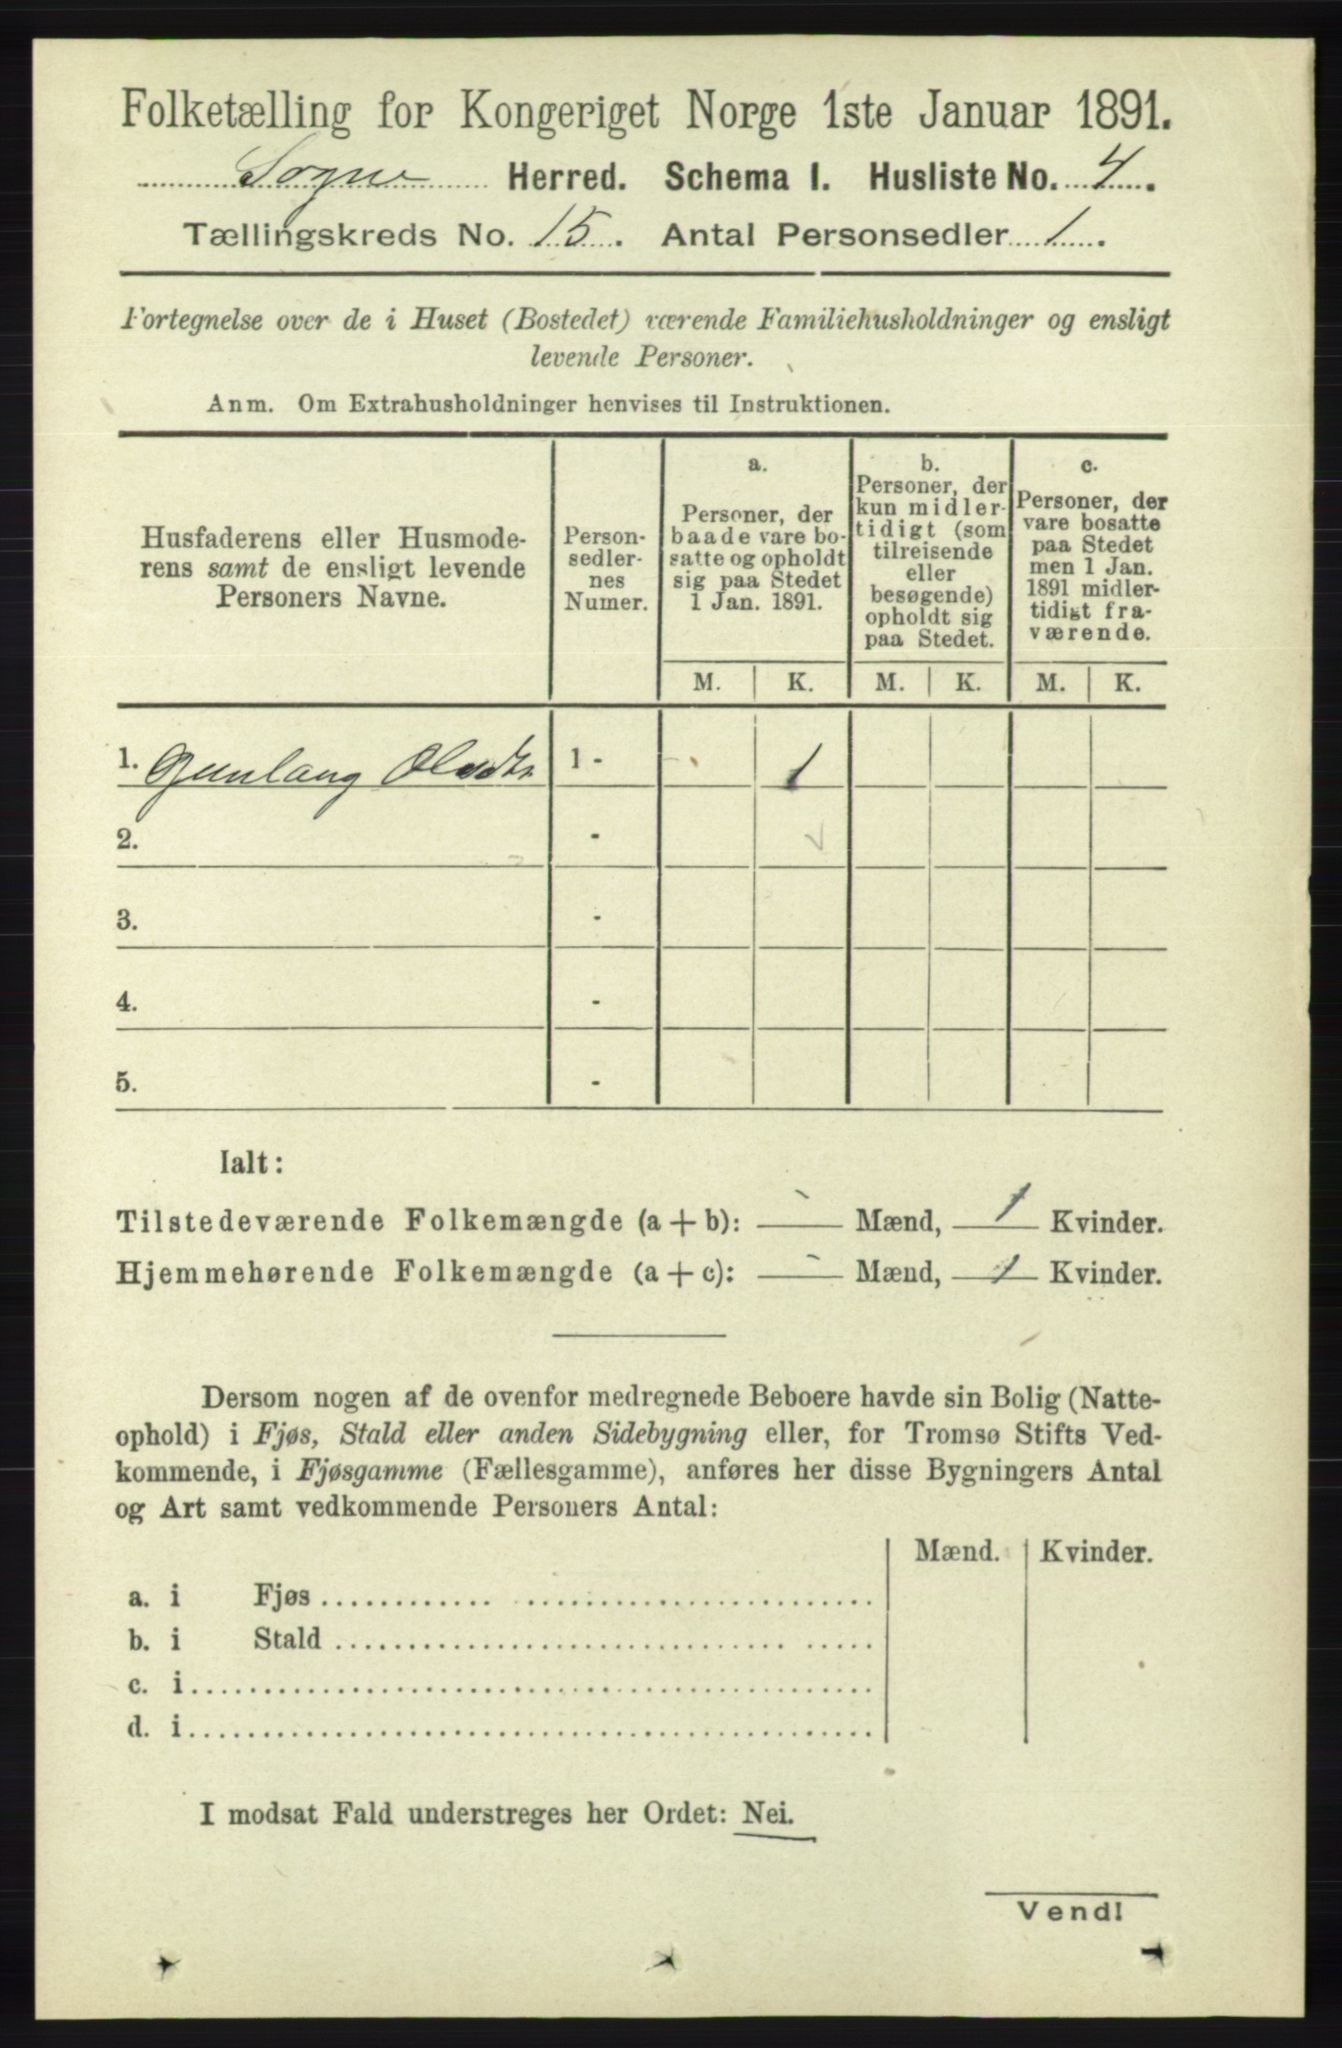 Folketælling for Kongeriget Norge 1ste Januar 1891.
Sogne Herred. Schema I. Husliste No. 4.
Tællingskreds No. 15. Antal Personsedler 1.
Fortegnelse over de i Huset (Bostedet) værende Familiehusholdninger og ensligt
levende Personer.
Anm. Om Extrahusholdninger henvises til Instruktionen.
Husfaderens eller Husmode-
rens samt de ensligt levende
Personers Navne.
Person-
sedler-
nes
Numer.
a.
Personer, der
baade vare bo-
satte og opholdt
sig paa Stedet
1 Jan. 1891.
b.
Personer, der
kun midler-
tidigt (som
tilreisende
eller
besøgende)
opholdt sig
paa Stedet.
c.
Personer, der
vare bosatte
paa Stedet
men 1 Jan.
1891 midler-
tidigt fra-
værende.
M. K. M. K. M. K.
1. Gunlaug Olsdtr 1 - - 1
2. -
3. -
4. -
5. -
Ialt:
Tilstedeværende Folkemængde (a + b): - Mænd, 1 Kvinder.
Hjemmehørende Folkemængde (a + c): - Mænd, 1 Kvinder.
Dersom nogen af de ovenfor medregnede Beboere havde sin Bolig (Natte-
ophold) i Fjøs, Stald eller anden Sidebygning eller, for Tromsø Stifts Ved-
kommende, i Fjøsgamme (Fællesgamme), anføres her disse Bygningers Antal
og Art samt vedkommende Personers Antal:
Mænd. Kvinder.
a. i Fjøs
b. i Stald
c. i
d. i
I modsat Fald understreges her Ordet: Nei.
Vend!